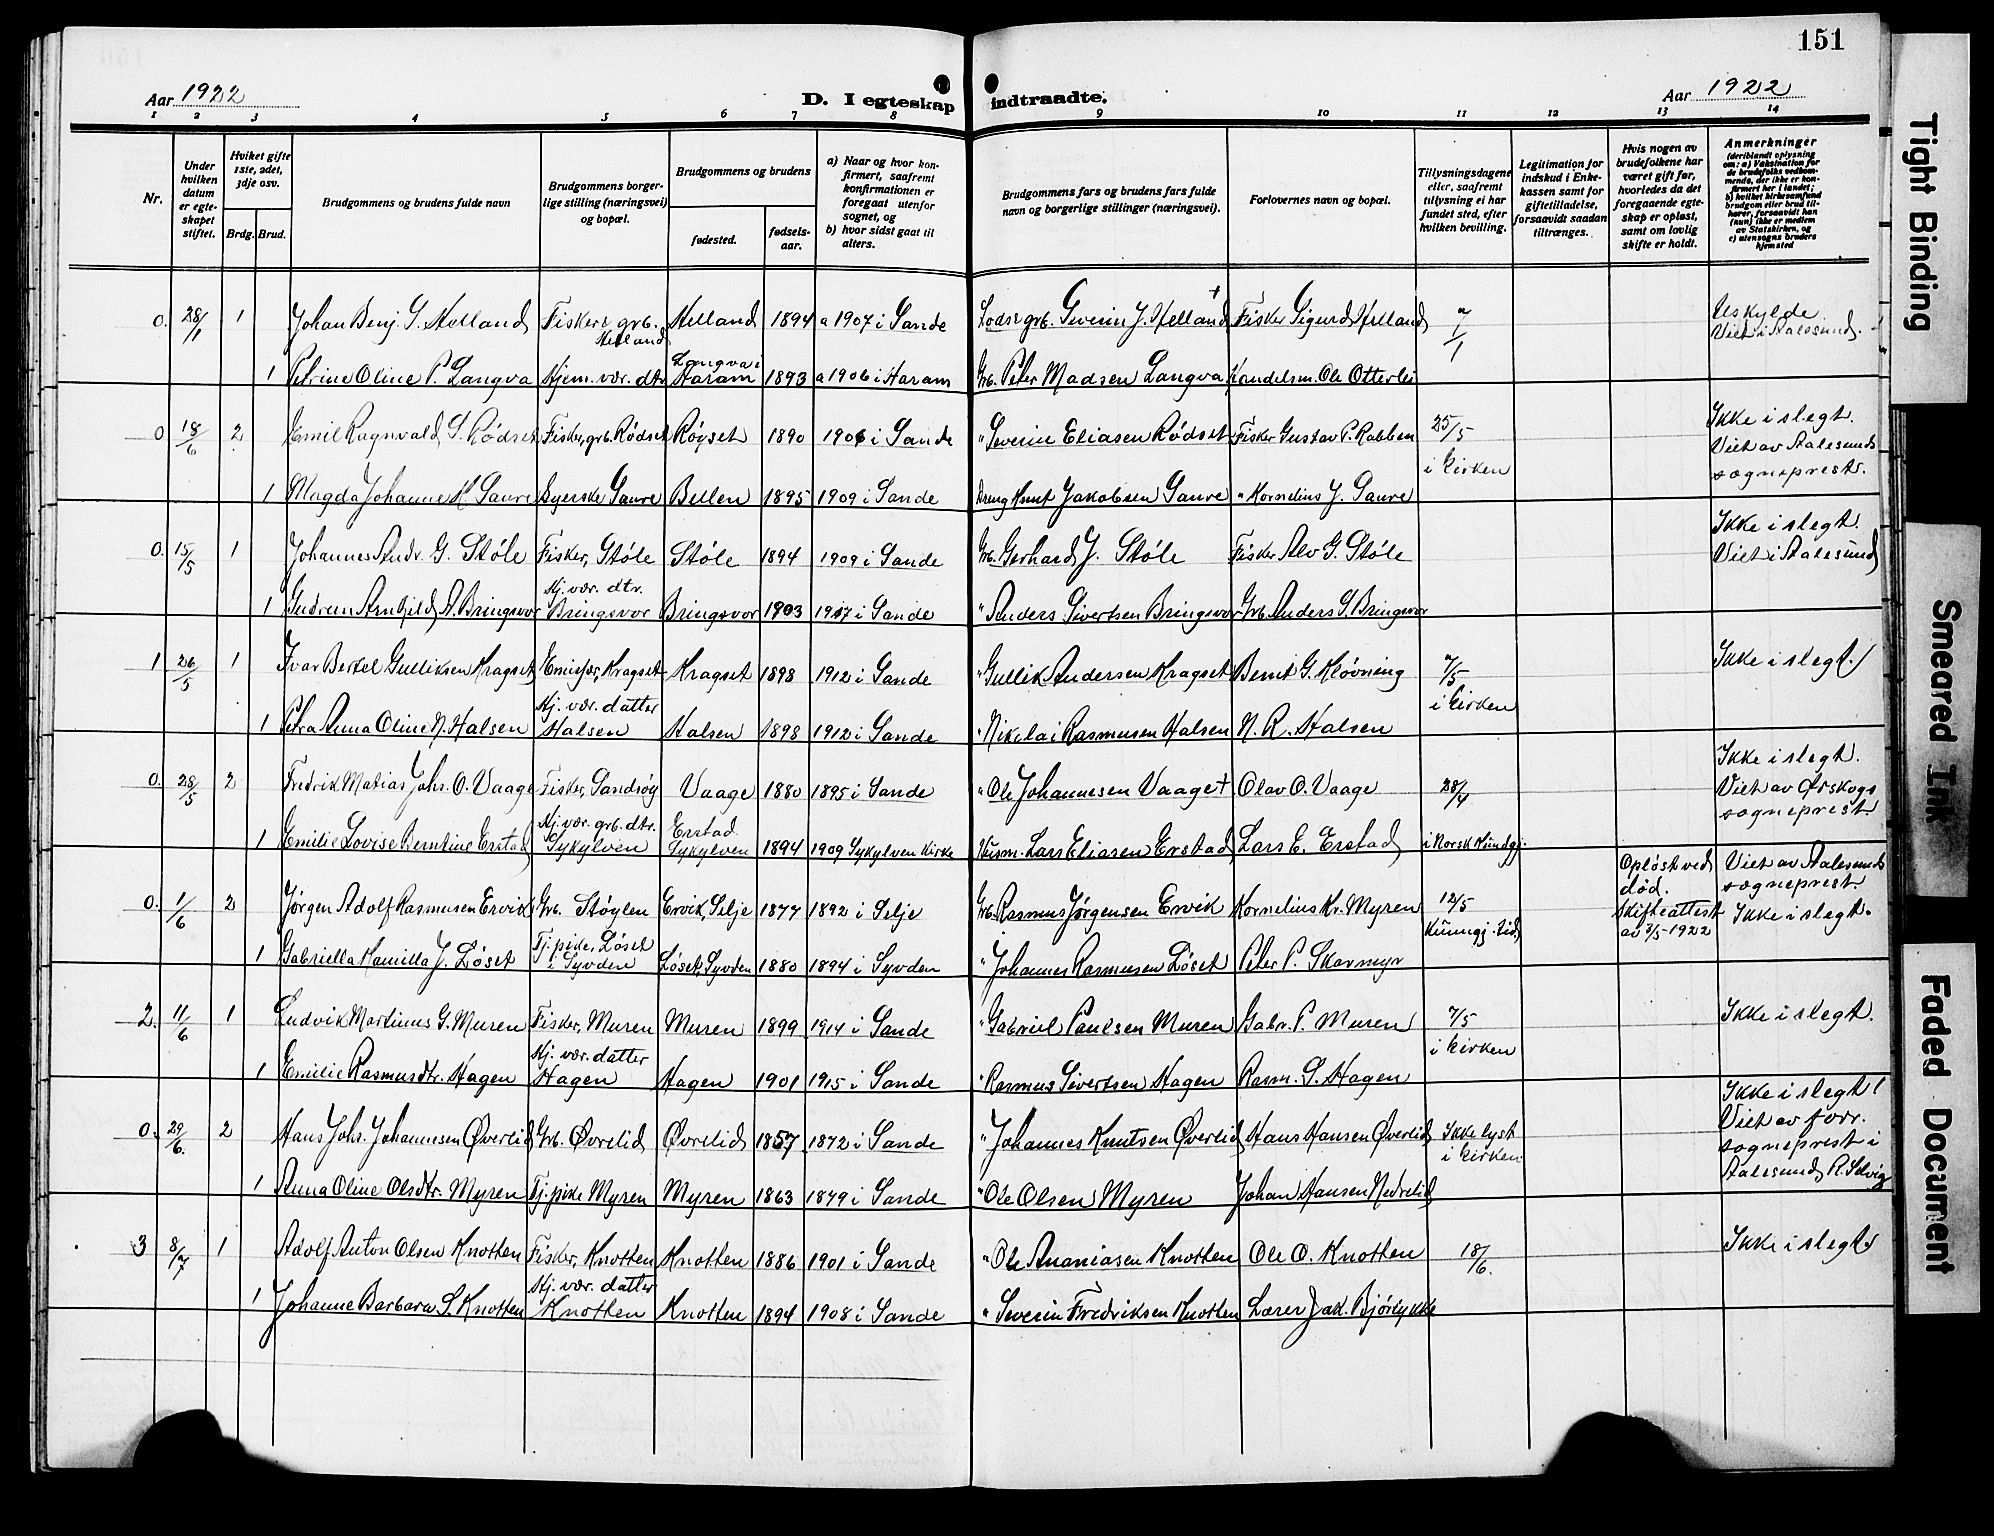 151
Aar 1922
D. I egteskap indtraadte.
Aar 1922
1 2 3 4 5 6 7 8 9 10 11 12 13 14
Nr.
Under hvilken datum er egteskapet stiftet.
Hvilket gifte 1ste, 2det, 3dje osv.
Brdg. Brud.
Brudgommens og brudens fulde navn
Brudgommens borgerlige stilling (næringsvei) og bopæl.
Brudgommens og brudens
fødested.
fødselsaar.
a) Naar og hvor konfirmert, saafremt konfirmationen er foregaat utenfor sognet, og
b) hvor sidst gaat til alters.
Brudgommens fars og brudens fars fulde navn og borgerlige stillinger (næringsvei).
Forlovernes navn og bopæl.
Tillysningsdagene eller, saafremt tillysning ei har fundet sted, efter hvilken bevilling.
Legitimation for indskud i Enkekassen samt for giftetilladelse, forsaavidt saadan tiltrænges.
Hvis nogen av brudefolkene har været gift før, hvorledes da det foregaaende egteskap er opløst, samt om lovlig skifte er holdt.
Anmerkninger
(deriblandt oplysning om: a) Vaksination for de brudefolks vedkommende, der ikke er konfirmert her i landet; b) hvilket kirkesamfund brudgom eller brud tilhører, forsaavidt han (hun) ikke er medlem av Statskirken, og c) utensogns bruders hjemsted
0. 28/1 1 Johan Benj. S. Helland Fisker, grb. Helland Helland 1894 a 1907 i Sande Lods, grb. Severin J. Helland + Fisker Sigurd Helland 7/1 Uskylde. Viet i Aalesund.
1 Petrine Oline P. Langva Hjem. vær. dtr Langva i Haram 1893 a 1906 i Haram Grb. Peter Madsen Langva Handelsm. Ole Otterlei
0 18/6 2 Emil Ragnvald S. Rødset Fisker, grb. Rødset Røyset 1890 1906 i Sande " Severin Eliasen Rødset Fisker Gustav P. Rabben 25/5 i kirken Ikke i slegt. Viet av Aalesunds sogneprest.
1 Magda Johanne K. Saure Syerske Saure Bellen 1895 1909 i Sande Dreng Knut Jakobsen Saure " Kornelius J. Saure
0. 15/5 1 Johannes Andr. G. Støle Fisker, Støle Støle 1894 1909 i Sande Grb. Gerhard J. Støle Fisker Alv G. Støle Ikke i slegt. Viet i Aalesund
1 Gudrun Arnhild A. Bringsvor Hj. vær. dtr. Bringsvor Bringsvor 1903 1917 i Sande " Anders Sivertsen Bringsvor Grb. Anders S. Bringsvor
1 26/5 1 Ivar Bertel Gulliksen Kragset Kragset Kragset 1898 1912 i Sande " Gullik Andersen Kragset Bernt G. Kløvning 7/5 i kirken Ikke i slegt.
1 Petra Anna Oline N. Halsen Hj. vær. datter Halsen Halsen 1898 1912 i Sande " Nikolai Rasmusen Halsen N. R. Halsen
0. 28/5 2 Fredrik Matias Johs. O. Vaage Fisker, Sandsøy Vaage 1880 1895 i Sande " Ole Johannesen Vaage + Olav O. Vaage 28/4 i Norsk Kundgj. Ikke i slegt. Viet av Ørskogs sogneprest.
1 Emilie Lovise Berntine Erstad Hj. vær. grb. dtr. Sykylven Erstad Sykylven 1894 1909 Sykylven kirke Husm. Lars Eliasen Erstad Lars E. Erstad
0. 1/6 2 Jørgen Adolf Rasmusen Ervik Grb. Støylen Ervik Selje 1877 1892 i Selje Grb. Rasmus Jørgensen Ervik Kornelius Kr. Myren 12/5 Kunngj. tid. Opløst ved død. Skifteattest av 3/5-1922 Viet av Aalesunds sogneprest. Ikke i slegt.
1 Gabriella Kamilla J. Løset Tj. pike, Løset i Syvden Løset, Syvden 1880 1894 i Syvden " Johannes Rasmusen Løset Peter P. Skarmyr
2. 11/6 1 Ludvik Martinus G. Muren Fisker, Muren Muren 1899 1914 i Sande " Gabriel Paulsen Muren Gabr. P. Muren 7/5 i kirken Ikke i slegt.
1 Emilie Rasmusdtr. Hagen Hj. vær. datter Hagen Hagen 1901 1915 i Sande " Rasmus Sivertsen Hagen Rasm. S. Hagen
0. 29/6. 2 Hans Johs. Johannesen Øvrelid Grb. Øvrelid Øvrelid 1857 1872 i Sande " Johannes Knutsen Øvrelid Hans Hansen Øvrelid Ikke lyst i kirken Ikke i slegt! Viet av forr. sogneprest i Aalesund, R. Selvig
1 Anna Oline Olsdtr. Myren Tj. pike Myren Myren 1863 1879 i Sande " Ole Olsen Myren Johan Hansen Nedrelid
3 8/7 1 Adolf Anton Olsen Knotten Fisker, Knotten Knotten 1886 1901 i Sande " Ole Ananiasen Knotten Ole O. Knotten 18/6. Ikke i slegt
1 Johanne Barbara S. Knotten Hj. vær. datter Knotten Knotten 1894 1908 i Sande " Severin Fredriksen Knotten Lærer Jak. Bjørlykke
Tight Binding
Smeared Ink
Faded Document